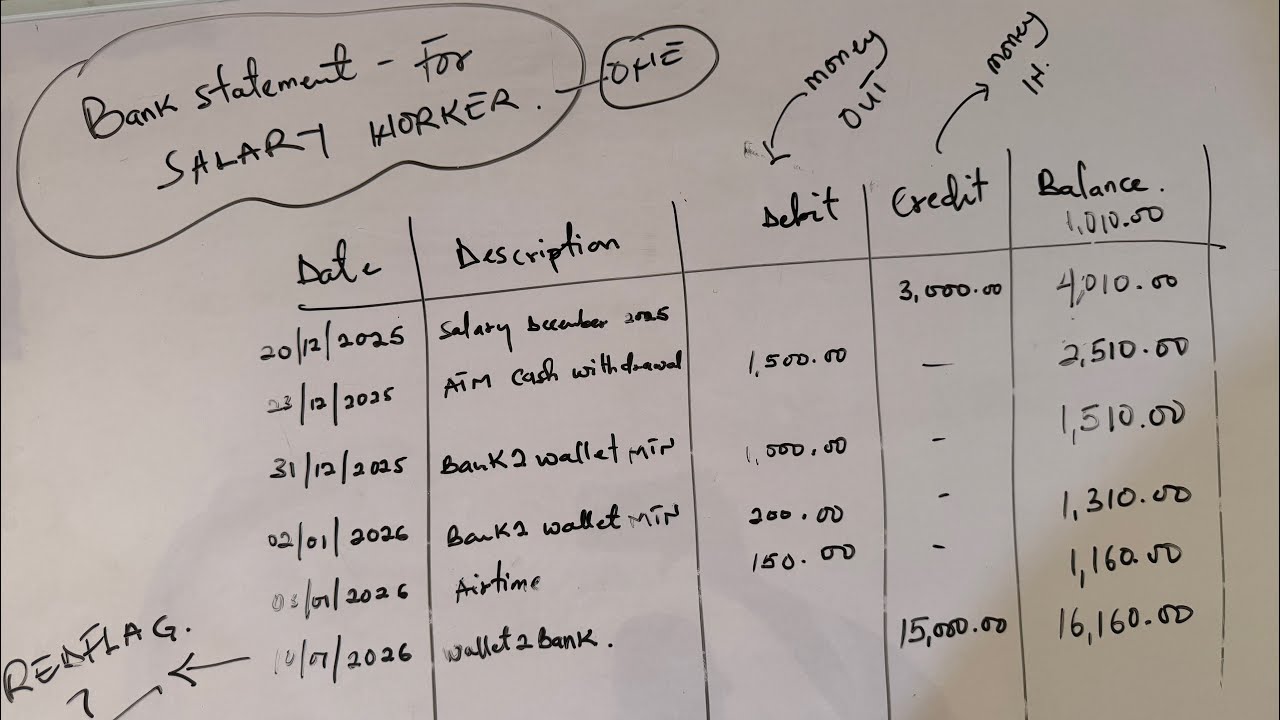 Bank statement - For
SALARY WORKER.
ONE
money
OUT
money
IN.
Date Description Debit Credit Balance.
1,010.00
20/12/2025 Salary December 2025 3,000.00 4,010.00
23/12/2025 ATM Cash withdrawal 1,500.00 — 2,510.00
31/12/2025 Bank2wallet MTN 1,000.00 - 1,510.00
02/01/2026 Bank2 wallet MTN 200.00 - 1,310.00
03/01/2026 Airtime 150.00 - 1,160.00
10/01/2026 wallet2Bank. 15,000.00 16,160.00
REDFLAG.